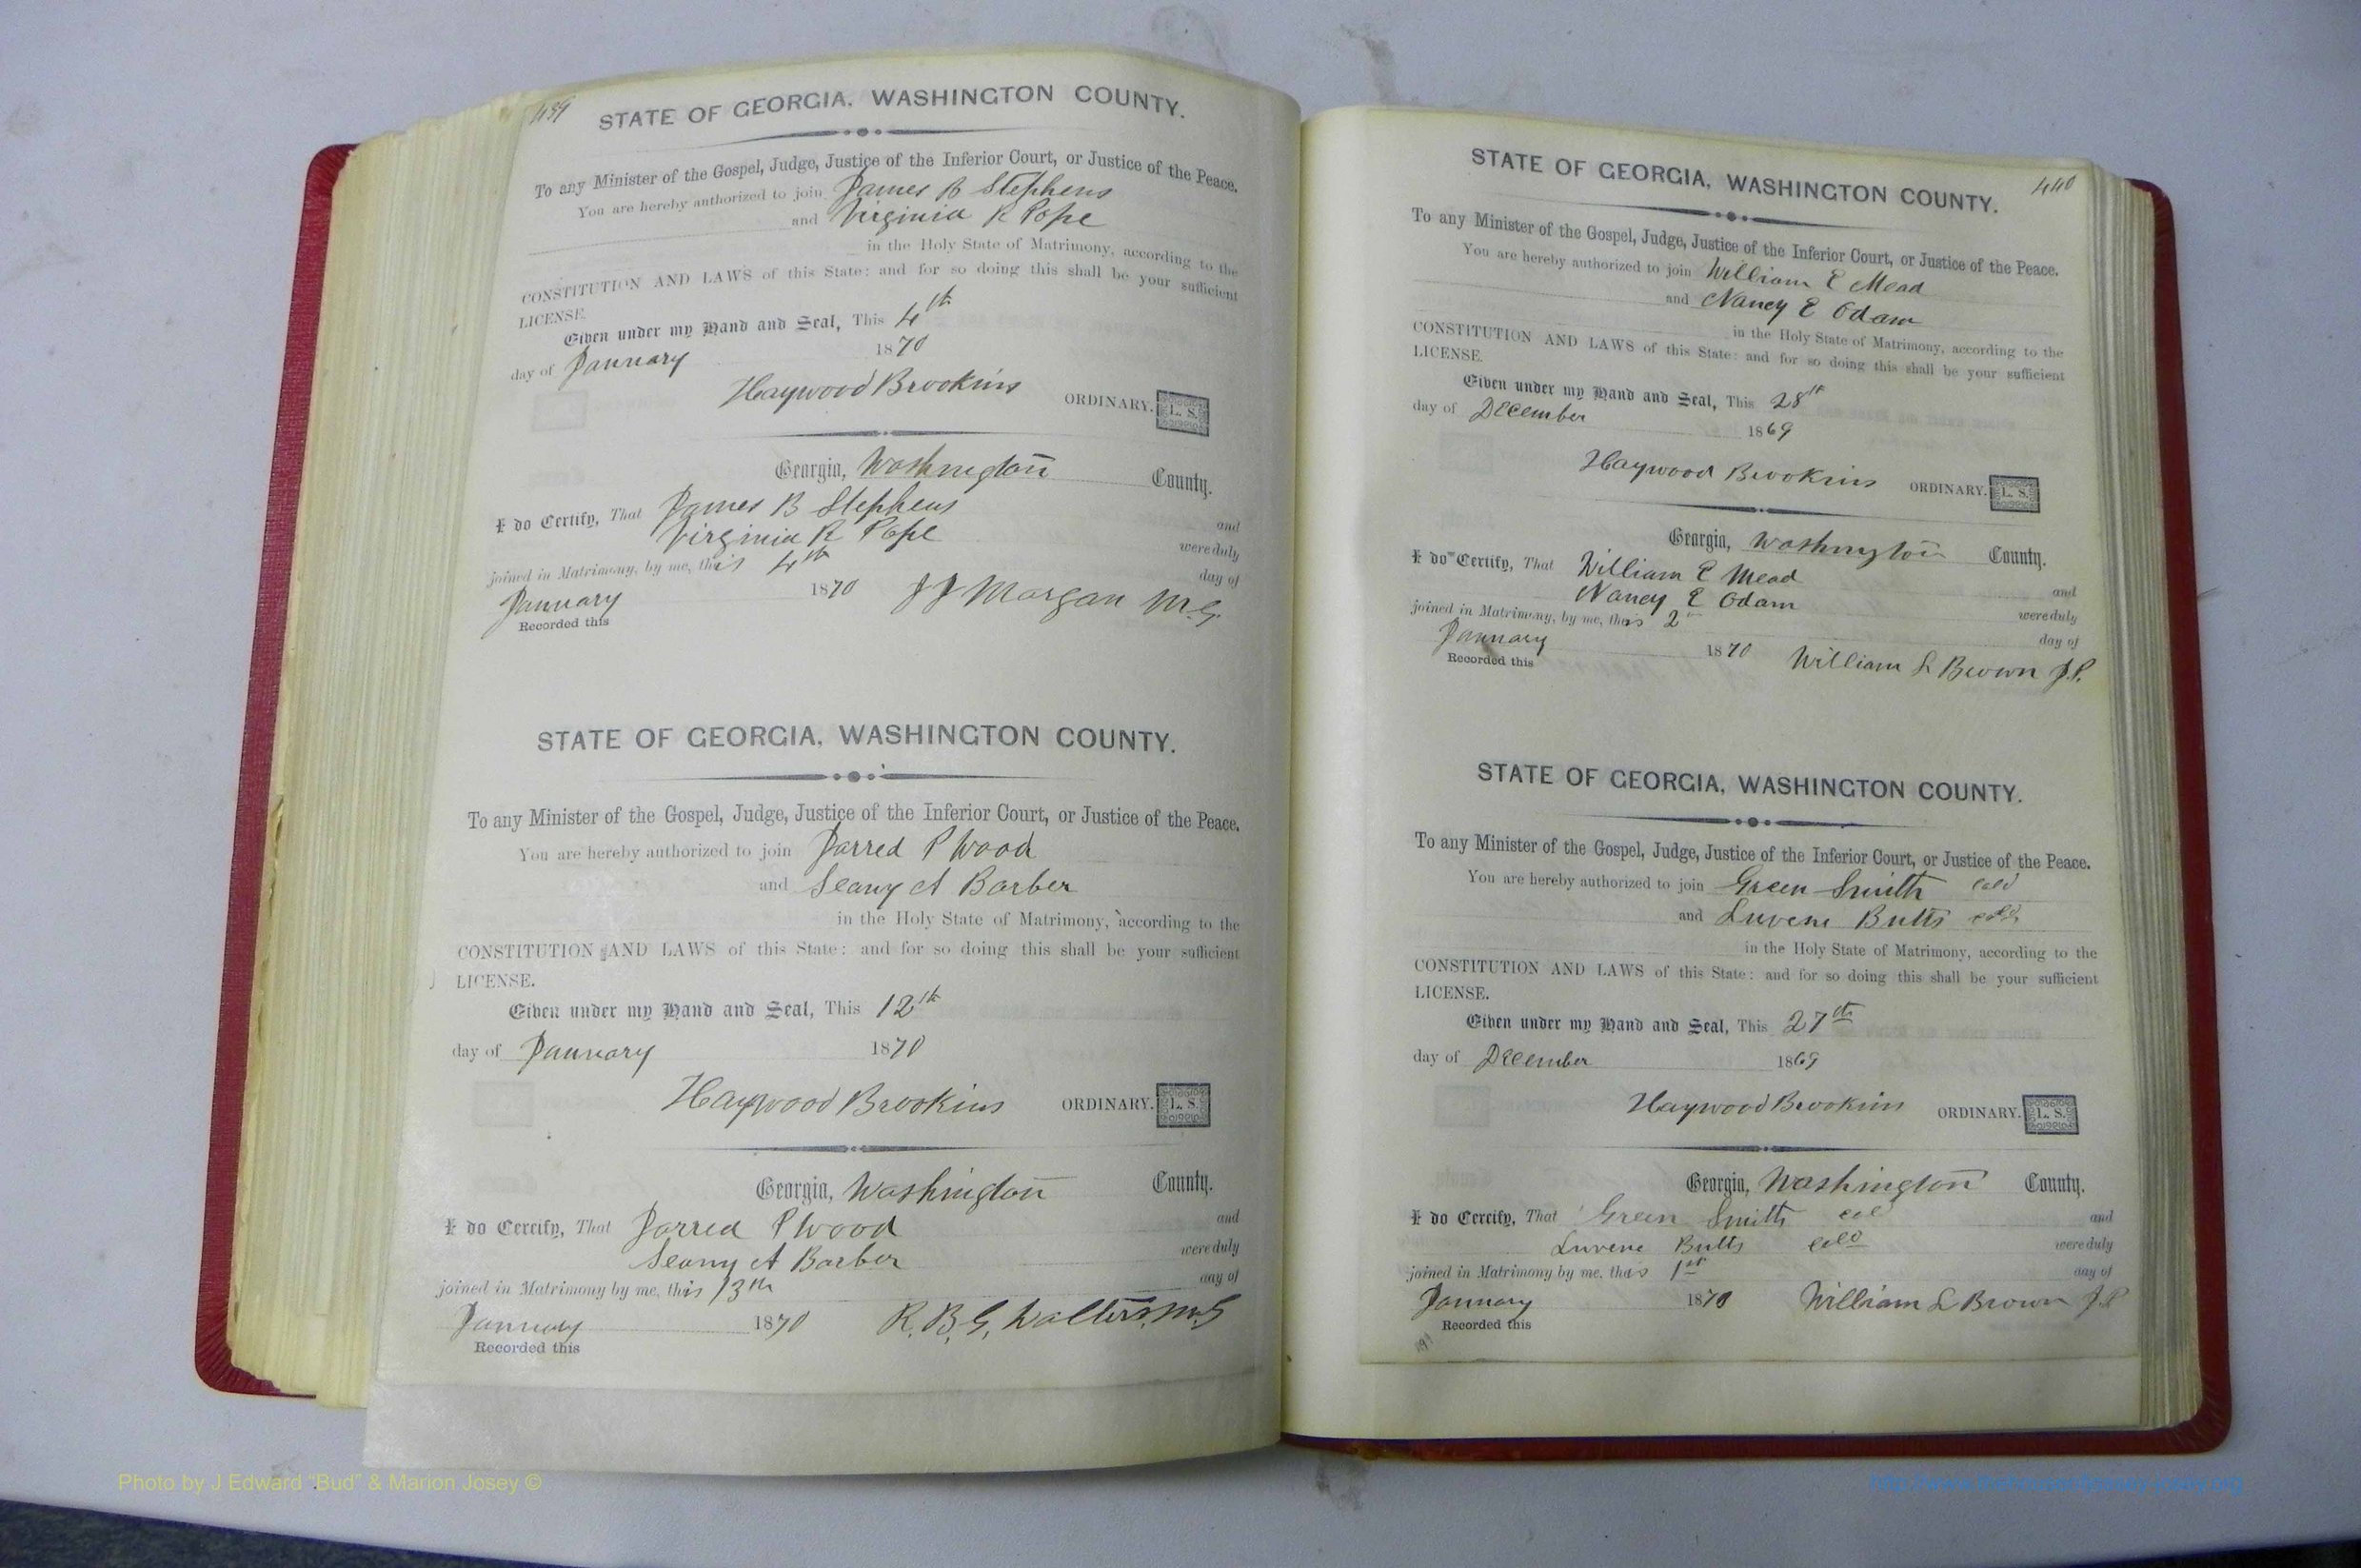 439
STATE OF GEORGIA, WASHINGTON COUNTY.
To any Minister of the Gospel, Judge, Justice of the Inferior Court, or Justice of the Peace.
You are hereby authorized to join James B Stephens
and Virginia R Pope
in the Holy State of Matrimony, according to the
CONSTITUTION AND LAWS of this State: and for so doing this shall be your sufficient
LICENSE.
Given under my Hand and Seal, This 4th
day of January 1870
Haywood Brookins ORDINARY. L. S.
Georgia, Washington County.
I do Certify, That James B Stephens and
Virginia R Pope were duly
joined in Matrimony, by me, this 4th day of
January 1870 J J Morgan M.G.
Recorded this
STATE OF GEORGIA, WASHINGTON COUNTY.
To any Minister of the Gospel, Judge, Justice of the Inferior Court, or Justice of the Peace.
You are hereby authorized to join Jarred P Wood
and Seany A Barber
in the Holy State of Matrimony, according to the
CONSTITUTION AND LAWS of this State: and for so doing this shall be your sufficient
LICENSE.
Given under my Hand and Seal, This 12th
day of January 1870
Haywood Brookins ORDINARY. L. S.
Georgia, Washington County.
I do Certify, That Jarred P Wood and
Seany A Barber were duly
joined in Matrimony by me, this 13th day of
January 1870 R. B. G. Walters. M.G
Recorded this
440
STATE OF GEORGIA, WASHINGTON COUNTY.
To any Minister of the Gospel, Judge, Justice of the Inferior Court, or Justice of the Peace.
You are hereby authorized to join William E Mead
and Nancy E Odam
in the Holy State of Matrimony, according to the
CONSTITUTION AND LAWS of this State: and for so doing this shall be your sufficient
LICENSE.
Given under my Hand and Seal, This 28th
day of December 1869
Haywood Brookins ORDINARY. L. S.
Georgia, Washington County.
I do Certify, That William E Mead
Nancy E Odam and
joined in Matrimony, by me, this 2 were duly
January day of
1870 William L Brown J.P.
Recorded this
STATE OF GEORGIA, WASHINGTON COUNTY.
To any Minister of the Gospel, Judge, Justice of the Inferior Court, or Justice of the Peace.
You are hereby authorized to join Green Smith cold
and Luvene Butts cold
in the Holy State of Matrimony, according to the
CONSTITUTION AND LAWS of this State: and for so doing this shall be your sufficient
LICENSE.
Given under my Hand and Seal, This 27th
day of December 1869
Haywood Brookins ORDINARY. L. S.
Georgia, Washington County.
I do Certify, That Green Smith col and
Luvene Butts cold were duly
joined in Matrimony by me, this 1st day of
January 1870 William L Brown J.P
Recorded this
Photo by J Edward "Bud" & Marion Josey ©